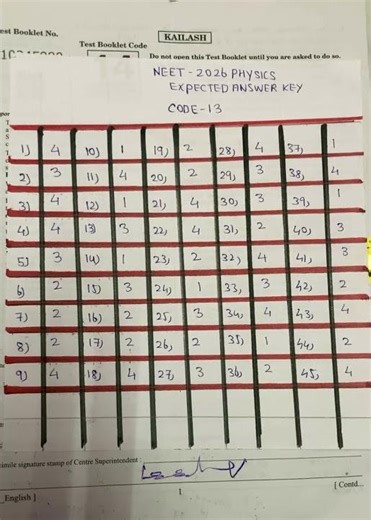 est Booklet No.
KAILASH
Test Booklet Code
Do not open this Test Booklet until you are asked to do so.
NEET - 2026 PHYSICS
EXPECTED ANSWER KEY
CODE-13
1) 4 10) 1 19) 2 28) 4 37) 1
2) 3 11) 4 20) 2 29) 3 38) 4
3) 4 12) 1 21) 4 30) 3 39) 1
4) 4 13) 3 22) 4 31) 2 40) 3
5) 3 14) 1 23) 2 32) 4 41) 3
6) 2 15) 3 24) 1 33) 3 42) 2
7) 2 16) 2 25) 3 34) 4 43) 4
8) 2 17) 2 26) 2 35) 1 44) 2
9) 4 18) 4 27) 3 36) 2 45) 4
simile signature stamp of Centre Superintendent :
English ]
1
[ Contd...